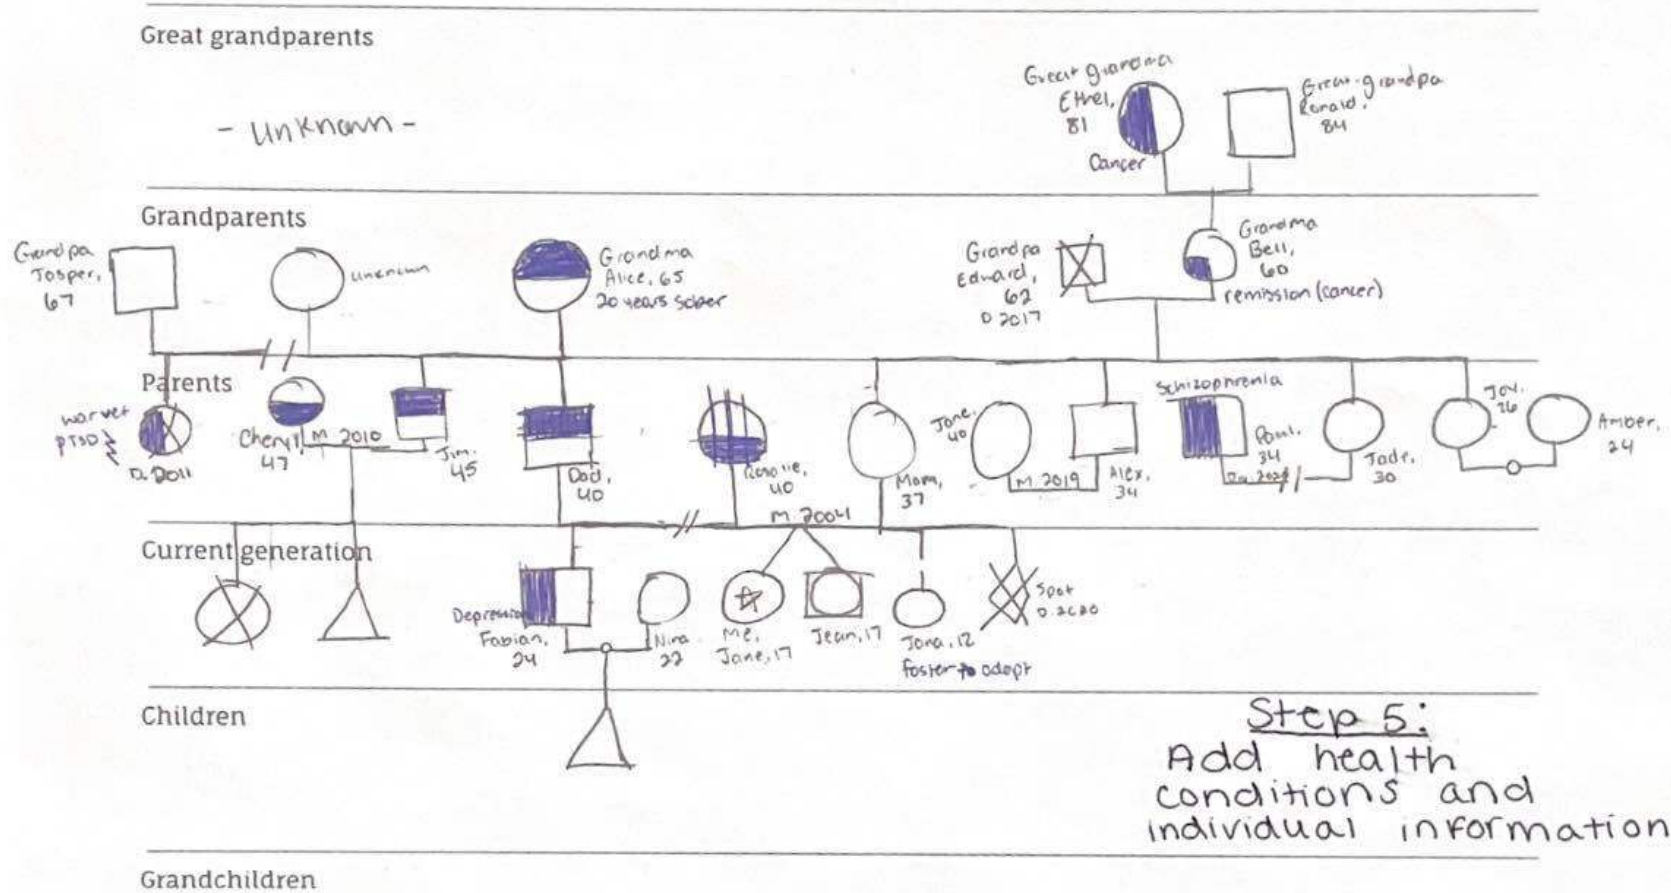 Great grandparents
- unknown -
Great grandma
Ethel,
81
Cancer
Great-grandpa
Ronald,
84
Grandparents
Grandpa
Jasper,
67
unknown
Grandma
Alice, 65
20 years sober
Grandpa
Edward,
62
D 2017
Grandma
Bell,
60
remission (cancer)
Parents
war vet
PTSD
D. 2011
Cheryl,
47
M. 2010
Jim,
45
Dad,
40
40
Mom,
37
Jane,
40
M. 2019
Alex,
34
Schizophrenia
Paul,
34
Jade,
30
Joy,
26
Amber,
24
M. 2004
Current generation
Depression
Fabian,
24
Nina
22
Me,
Jane, 17
Jean, 17
Jana, 12
foster to adopt
Spot
D. 2020
Children
Step 5:
Add health
conditions and
individual information
Grandchildren